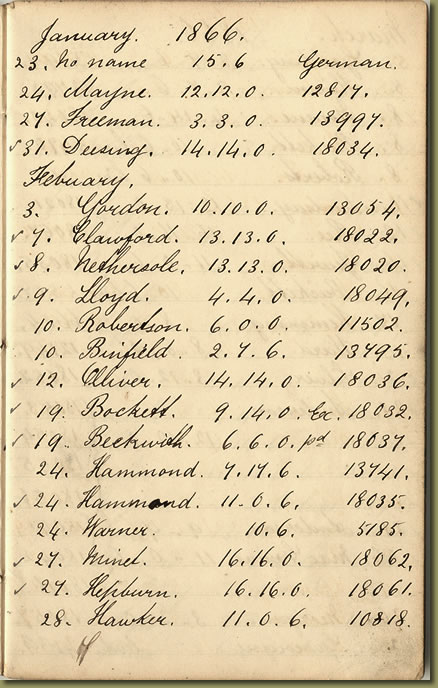 January. 1866.
23. No name 15.6 German.
24. Mayne. 12.12.0. 12817.
27. Freeman. 3.3.0. 13997.
✓31. Deesing. 14.14.0. 18034.
February.
3. Gordon. 10.10.0. 13054.
✓7. Clawford. 13.13.0. 18022.
✓8. Nethersole. 13.13.0. 18020.
✓9. Lloyd. 4.4.0. 18049.
10. Robertson. 6.0.0. 11502.
10. Binfield. 2.7.6. 13795.
✓12. Olliver. 14.14.0. 18036.
✓19. Bockett. 9.14.0. Ex. 18032.
✓19. Beckwith. 6.6.0. pd 18037.
24. Hammond. 7.17.6. 13741.
✓24. Hammond. 11.0.6. 18035.
24. Warner. 10.6. 5185.
✓27. Minet. 16.16.0. 18062.
✓27. Hepburn. 16.16.0. 18061.
28. Hawker. 11.0.6. 10818.